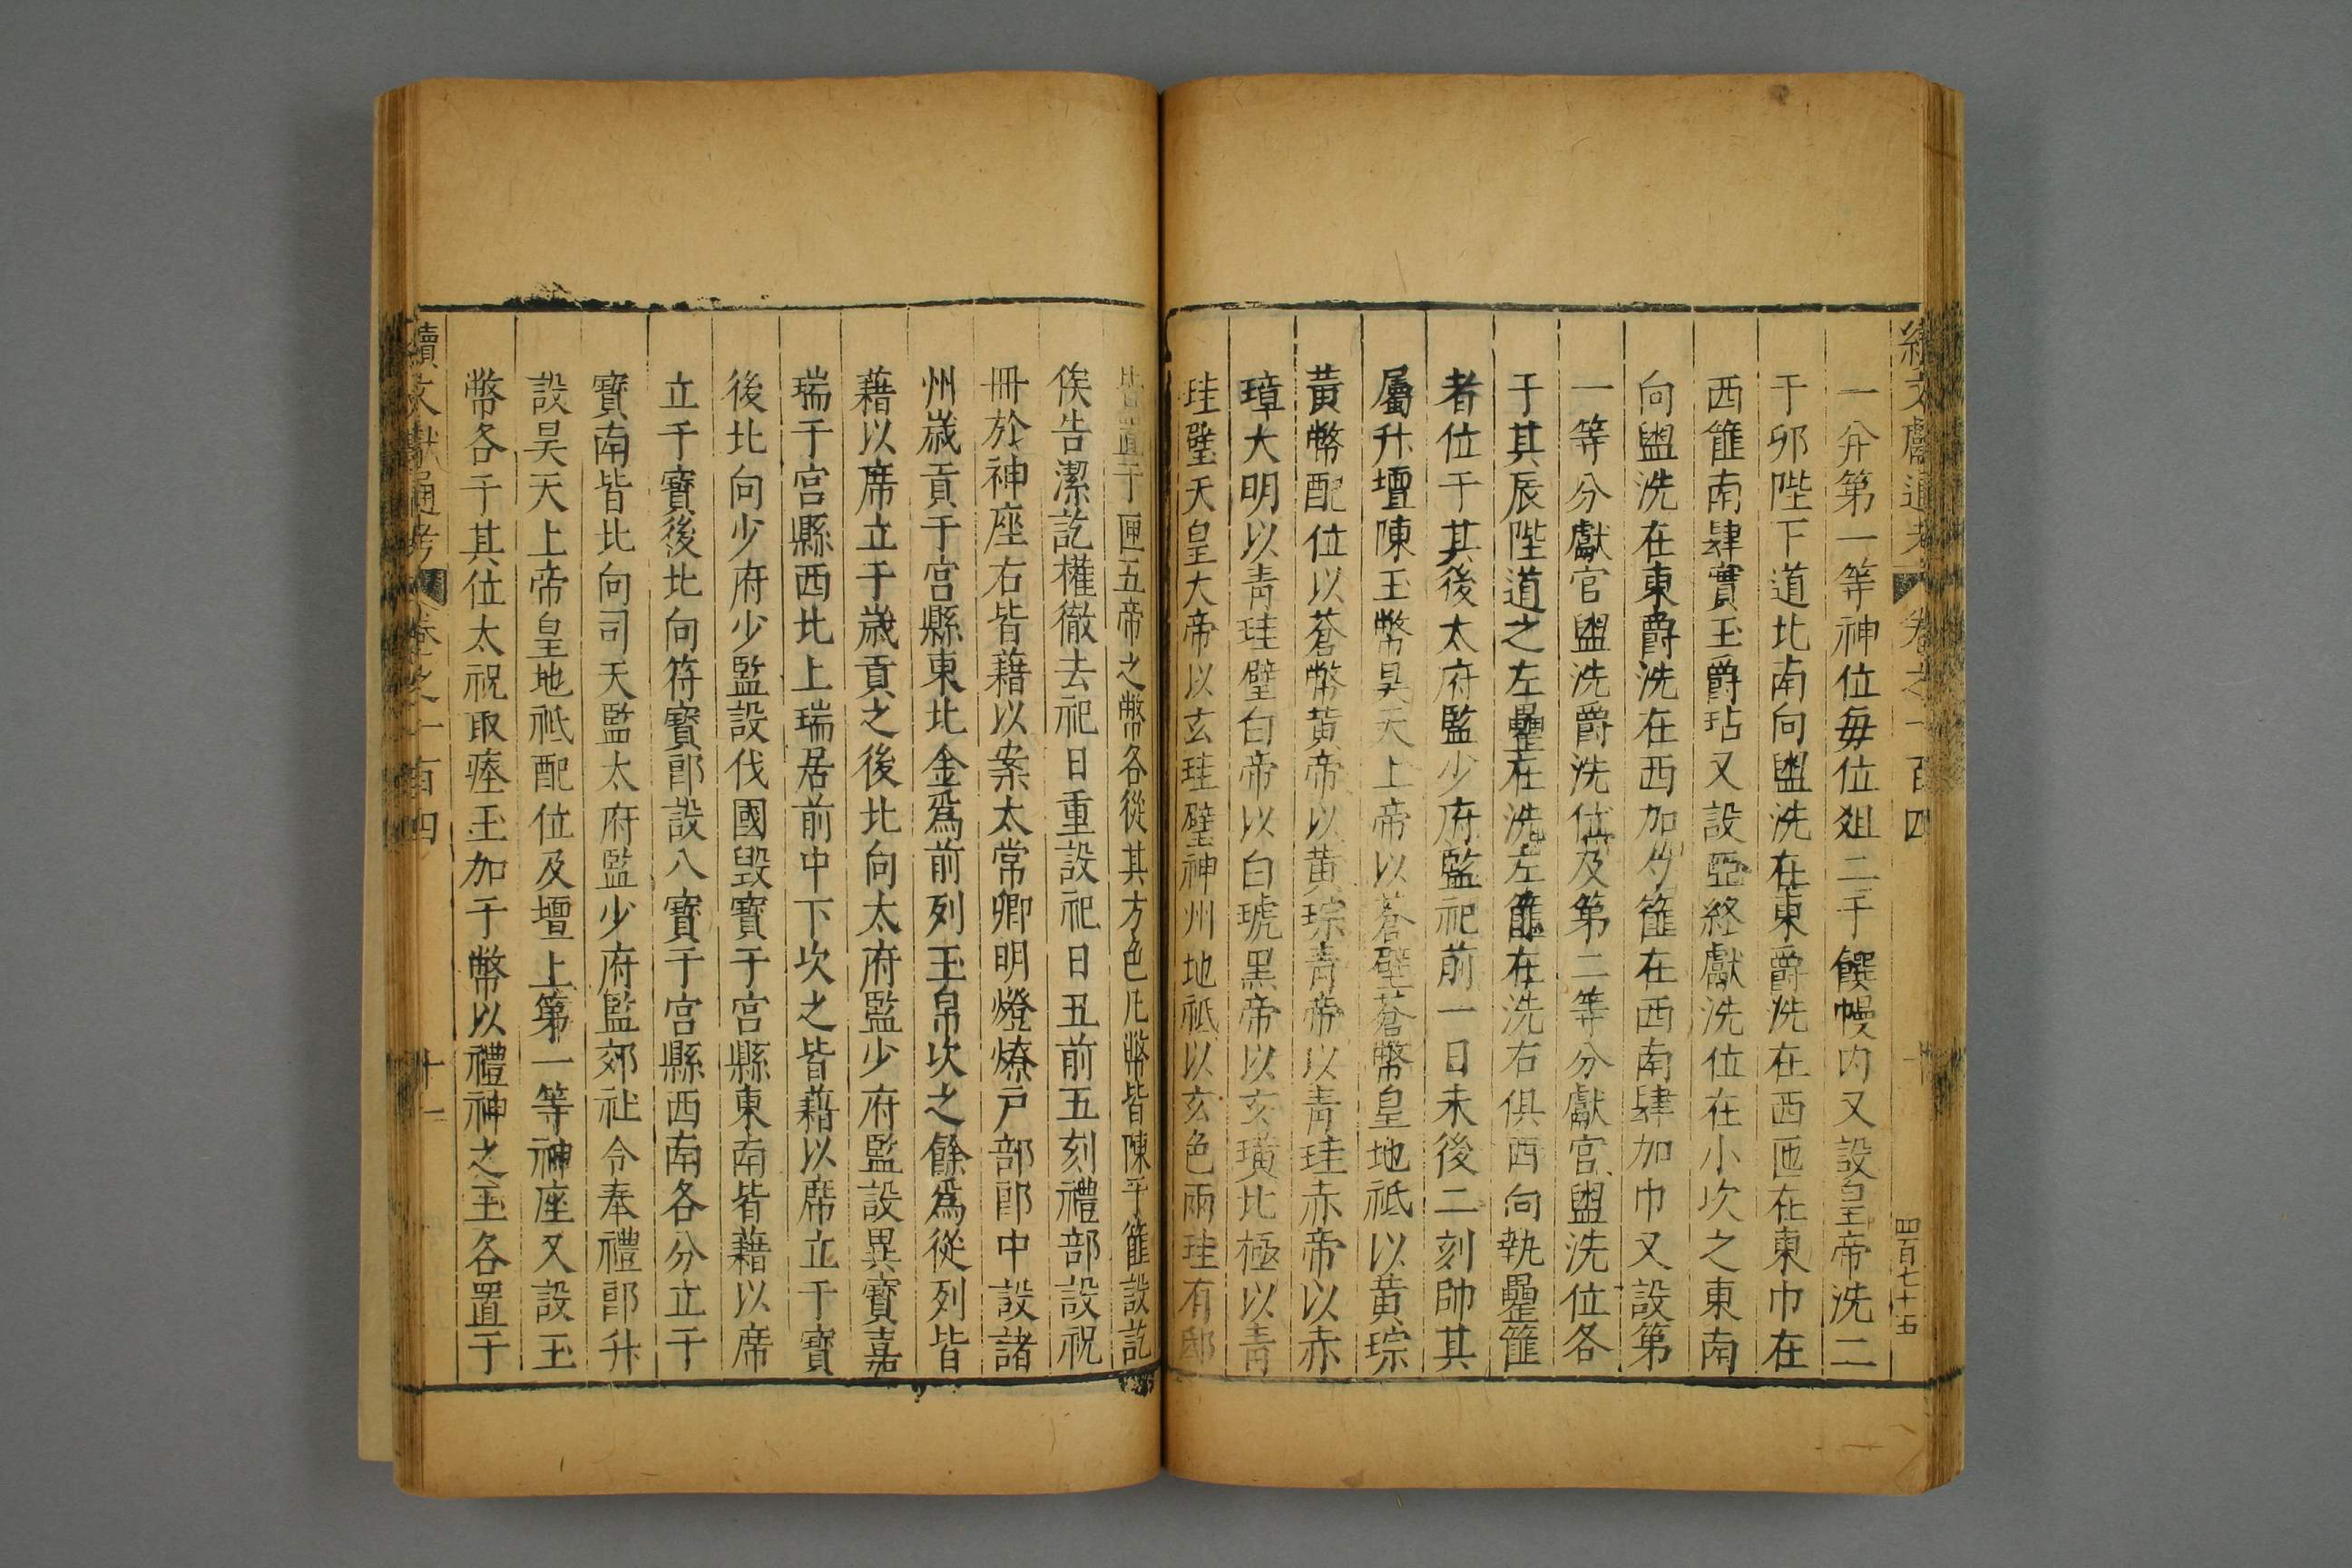 續文獻通考 卷之一百四 十 四百七十五
一分第一等神位每位爼二于饌幔內又設皇帝洗二
于夘陛下道北南向盥洗在東爵洗在西匜在東巾在
西篚南肆實玉爵坫又設亞終獻洗位在小次之東南
向盥洗在東爵洗在西加勺篚在西南肆加巾又設第
一等分獻官盥洗爵洗位及第二等分獻官盥洗位各
于其辰陛道之左罍在洗左篚在洗右俱西向執罍篚
者位于其後太府監少府監祀前一日未後二刻帥其
屬升壇陳玉幣昊天上帝以蒼璧蒼幣皇地祇以黃琮
黃幣配位以蒼幣黃帝以黃琮青帝以青珪赤帝以赤
璋大明以青珪璧白帝以白琥黑帝以玄璜北極以青
珪璧天皇大帝以玄珪璧神州地祇以玄色兩珪有邸
皆置于匣五帝之幣各從其方色凡幣皆陳于篚設訖
俟告潔訖權徹去祀日重設祀日丑前五刻禮部設祝
冊於神座右皆藉以案太常卿明燈燎戸部郎中設諸
州歲貢于宫縣東北金爲前列玉帛次之餘爲從列皆
藉以席立于歲貢之後北向太府監少府監設異寶嘉
瑞于宫縣西北上瑞居前中下次之皆藉以席立于寶
後北向少府少監設伐國毀寶于宫縣東南皆藉以席
立于寶後北向符寶郎設八寶于宫縣西南各分立于
寶南皆北向司天監太府監少府監郊社令奉禮郎升
設昊天上帝皇地祇配位及壇上第一等神座又設玉
幣各于其位太祝取瘞玉加于幣以禮神之玉各置于
續文獻通考 卷之一百四 十一